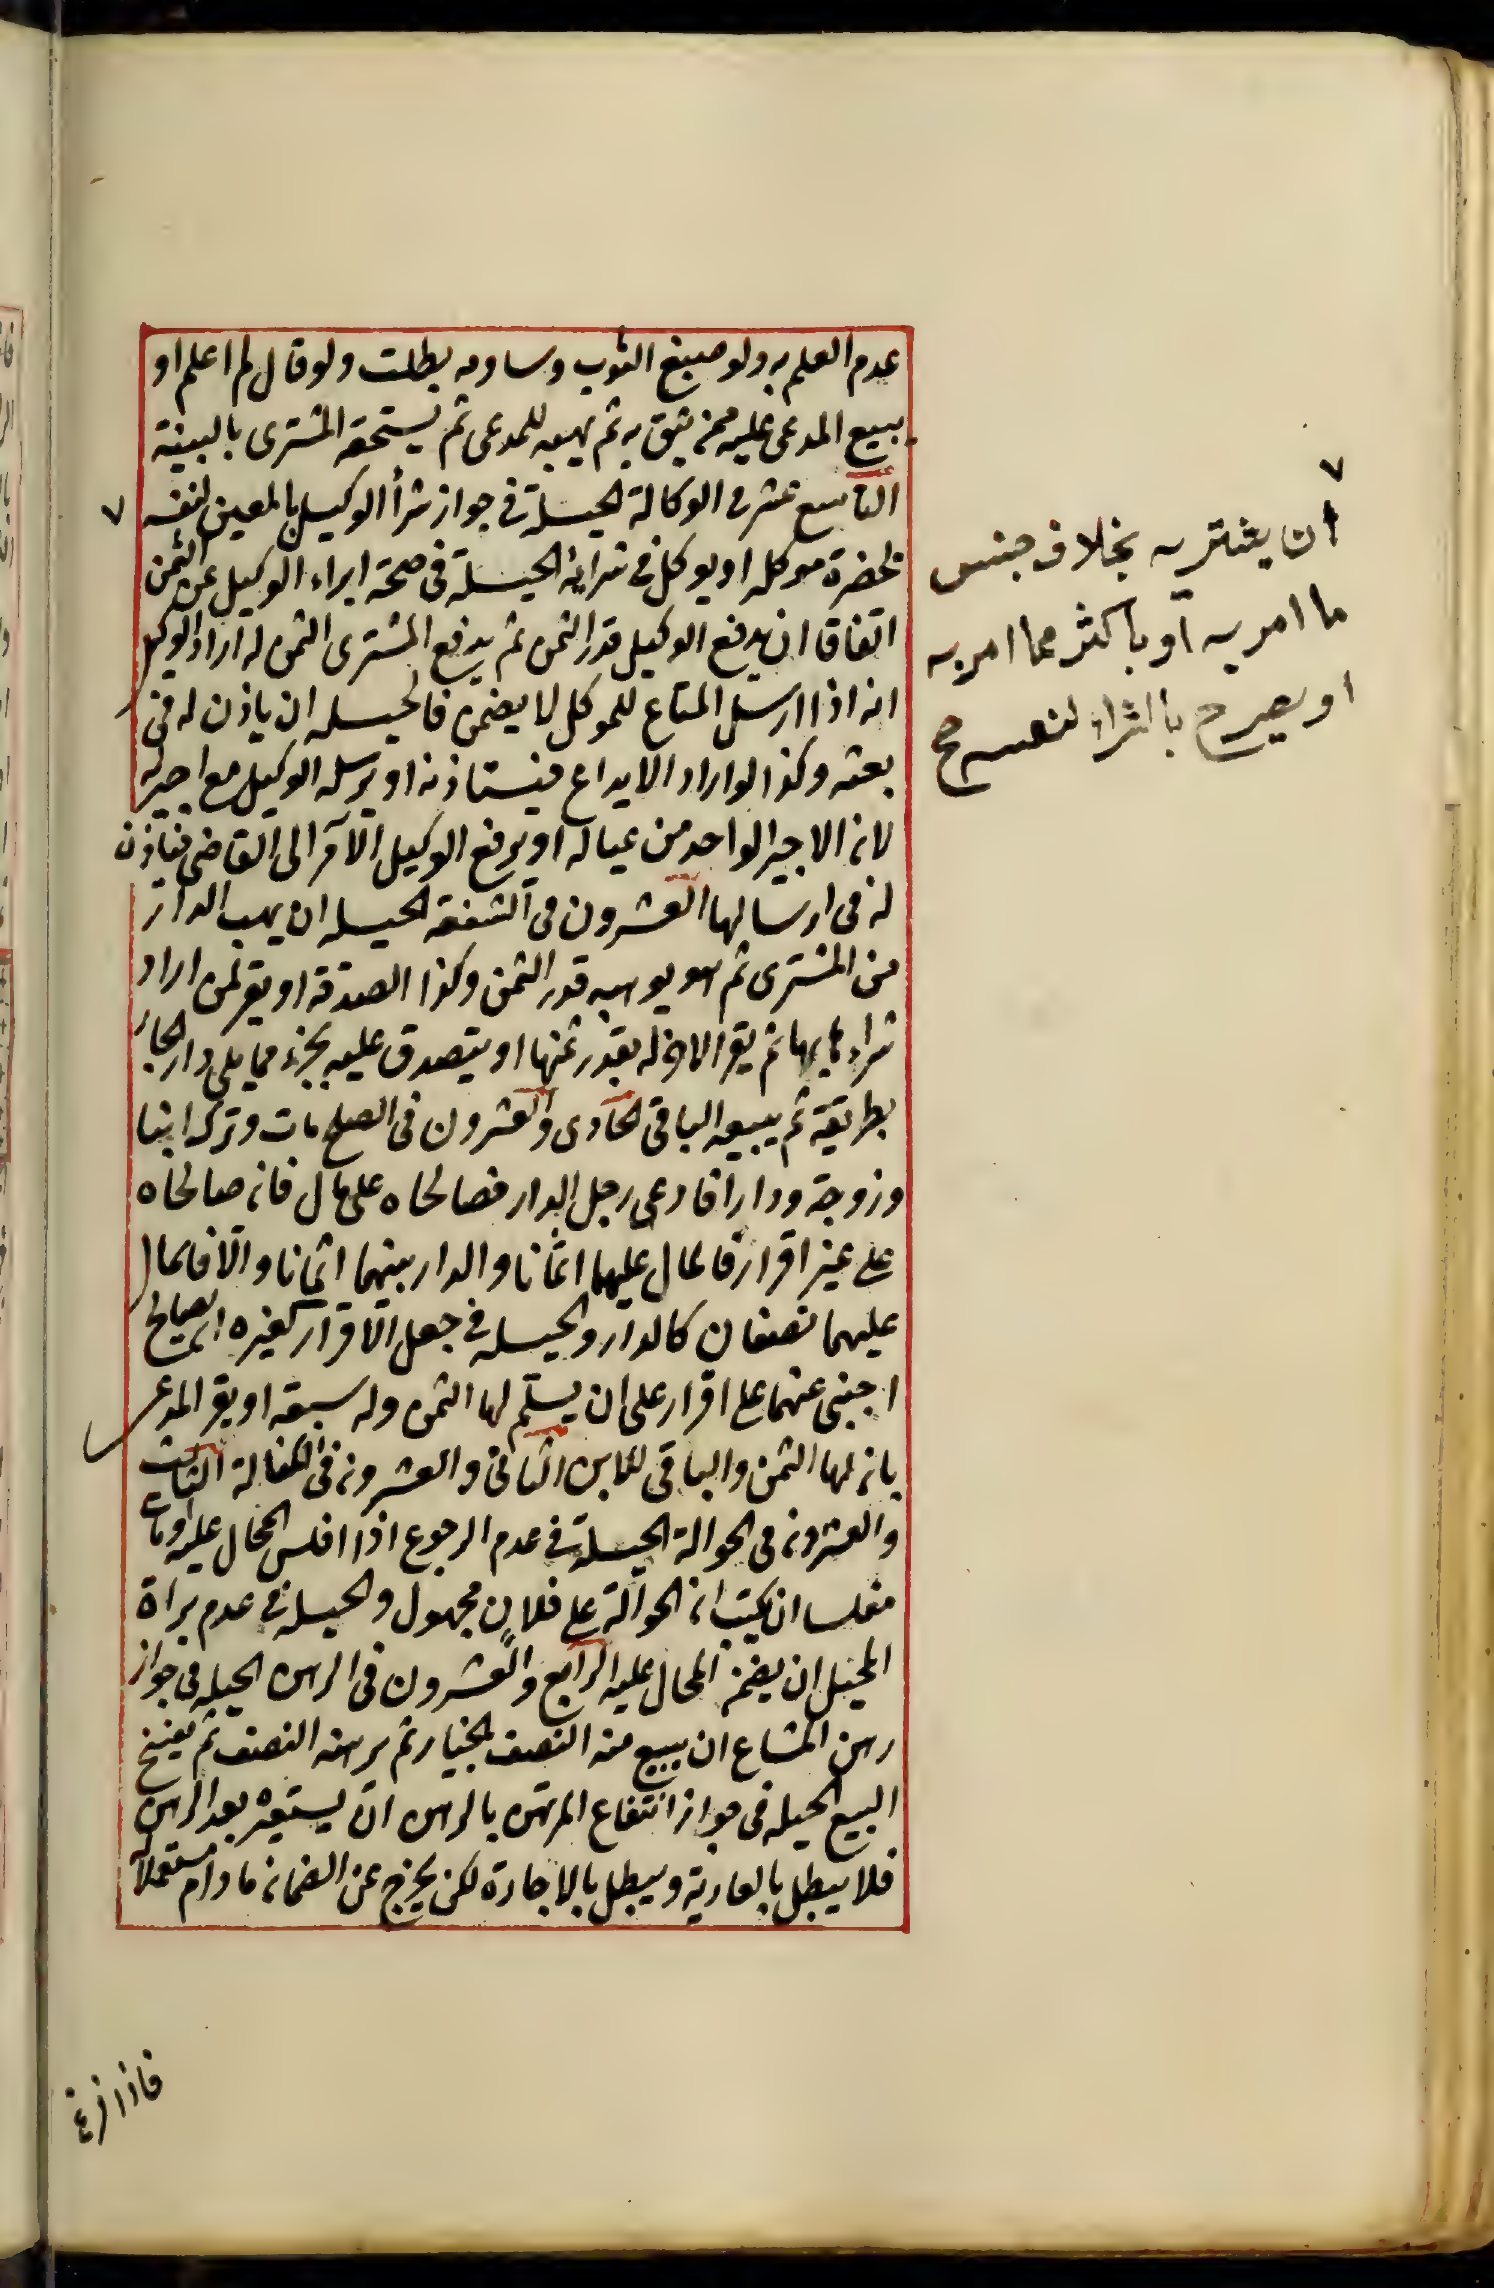 عدم العلم به ولو صبغ الثوب وساومه بطلت ولو قال لم اعلم او
يبيع المدعى عليه ممن يثق به ثم يهبه للمدعى ثم يستحقه المشترى بالبينة
التاسع عشر فى الوكالة الحيلة فى جواز شرأ الوكيل بالمعين لنفسه ٧
بحضرة موكله او يوكل فى شرائه الحيلة فى صحة ابراء الوكيل عن الثمن
اتفاقا ان يدفع الوكيل قدر الثمن ثم يدفع المشترى الثمن له اراد الوكيل
انه اذا ارسل المتاع للموكل لا يضمن فالحيله ان ياذن له فى
بعثه وكذا لو اراد الايداع فيستاذنه او يرسله الوكيل مع اجير له
لان الاجير الواحد من عياله او يرفع الوكيل الامر الى القاضى فياذن
له فى ارسالها العشرون فى الشفعة الحيله ان يهب الدار
من المشترى ثم هو يوهبه قدر الثمن وكذا الصدقة او يقر لمن اراد
شراءها بها ثم يقر الاخر له بقدر ثمنها او يتصدق عليه بجزء مما يلى دار الجار
بطريقه ثم يبيعه الباقى الحادى والعشرون فى الصلح مات وترك ابنا
وزوجة ودارا فادعى رجل الدار فصالحاه على مال فان صالحاه
على غير اقرار فالمال عليهما اثمانا والدار بينهما اثمانا والا فالمال
عليهما نصفان كالدار والحيله فى جعل الاقرار كغيره ان يصالح
اجنبى عنهما على اقرار على ان يسلم لها الثمن وله سبعة او يقر المدعى
بان لها الثمن والباقى للابن الثانى والعشرون فى الكفالة الثالث
والعشرون فى الحوالة الحيلة فى عدم الرجوع اذا افلس المحال عليه او مات
مفلسا ان يكتب ان الحوالة على فلان مجهول والحيله فى عدم براة
المحيل ان يضمن المحال عليه الرابع والعشرون فى الرهن الحيله فى جواز
رهن المشاع ان يبيع منه النصف بالخيار ثم يرهنه النصف ثم يفسخ
البيع الحيله فى جواز انتفاع المرتهن بالرهن ان يستعيره بعد الرهن
فلا يبطل بالعارية ويبطل بالاجارة لكن يخرج عن الضمان ما دام مستعملا له
فاذا فرغ
٧
ان يشتريه بخلاف جنس
ما امر به او باكثر مما امر به
او يصرح بالشراء لنفسه صح